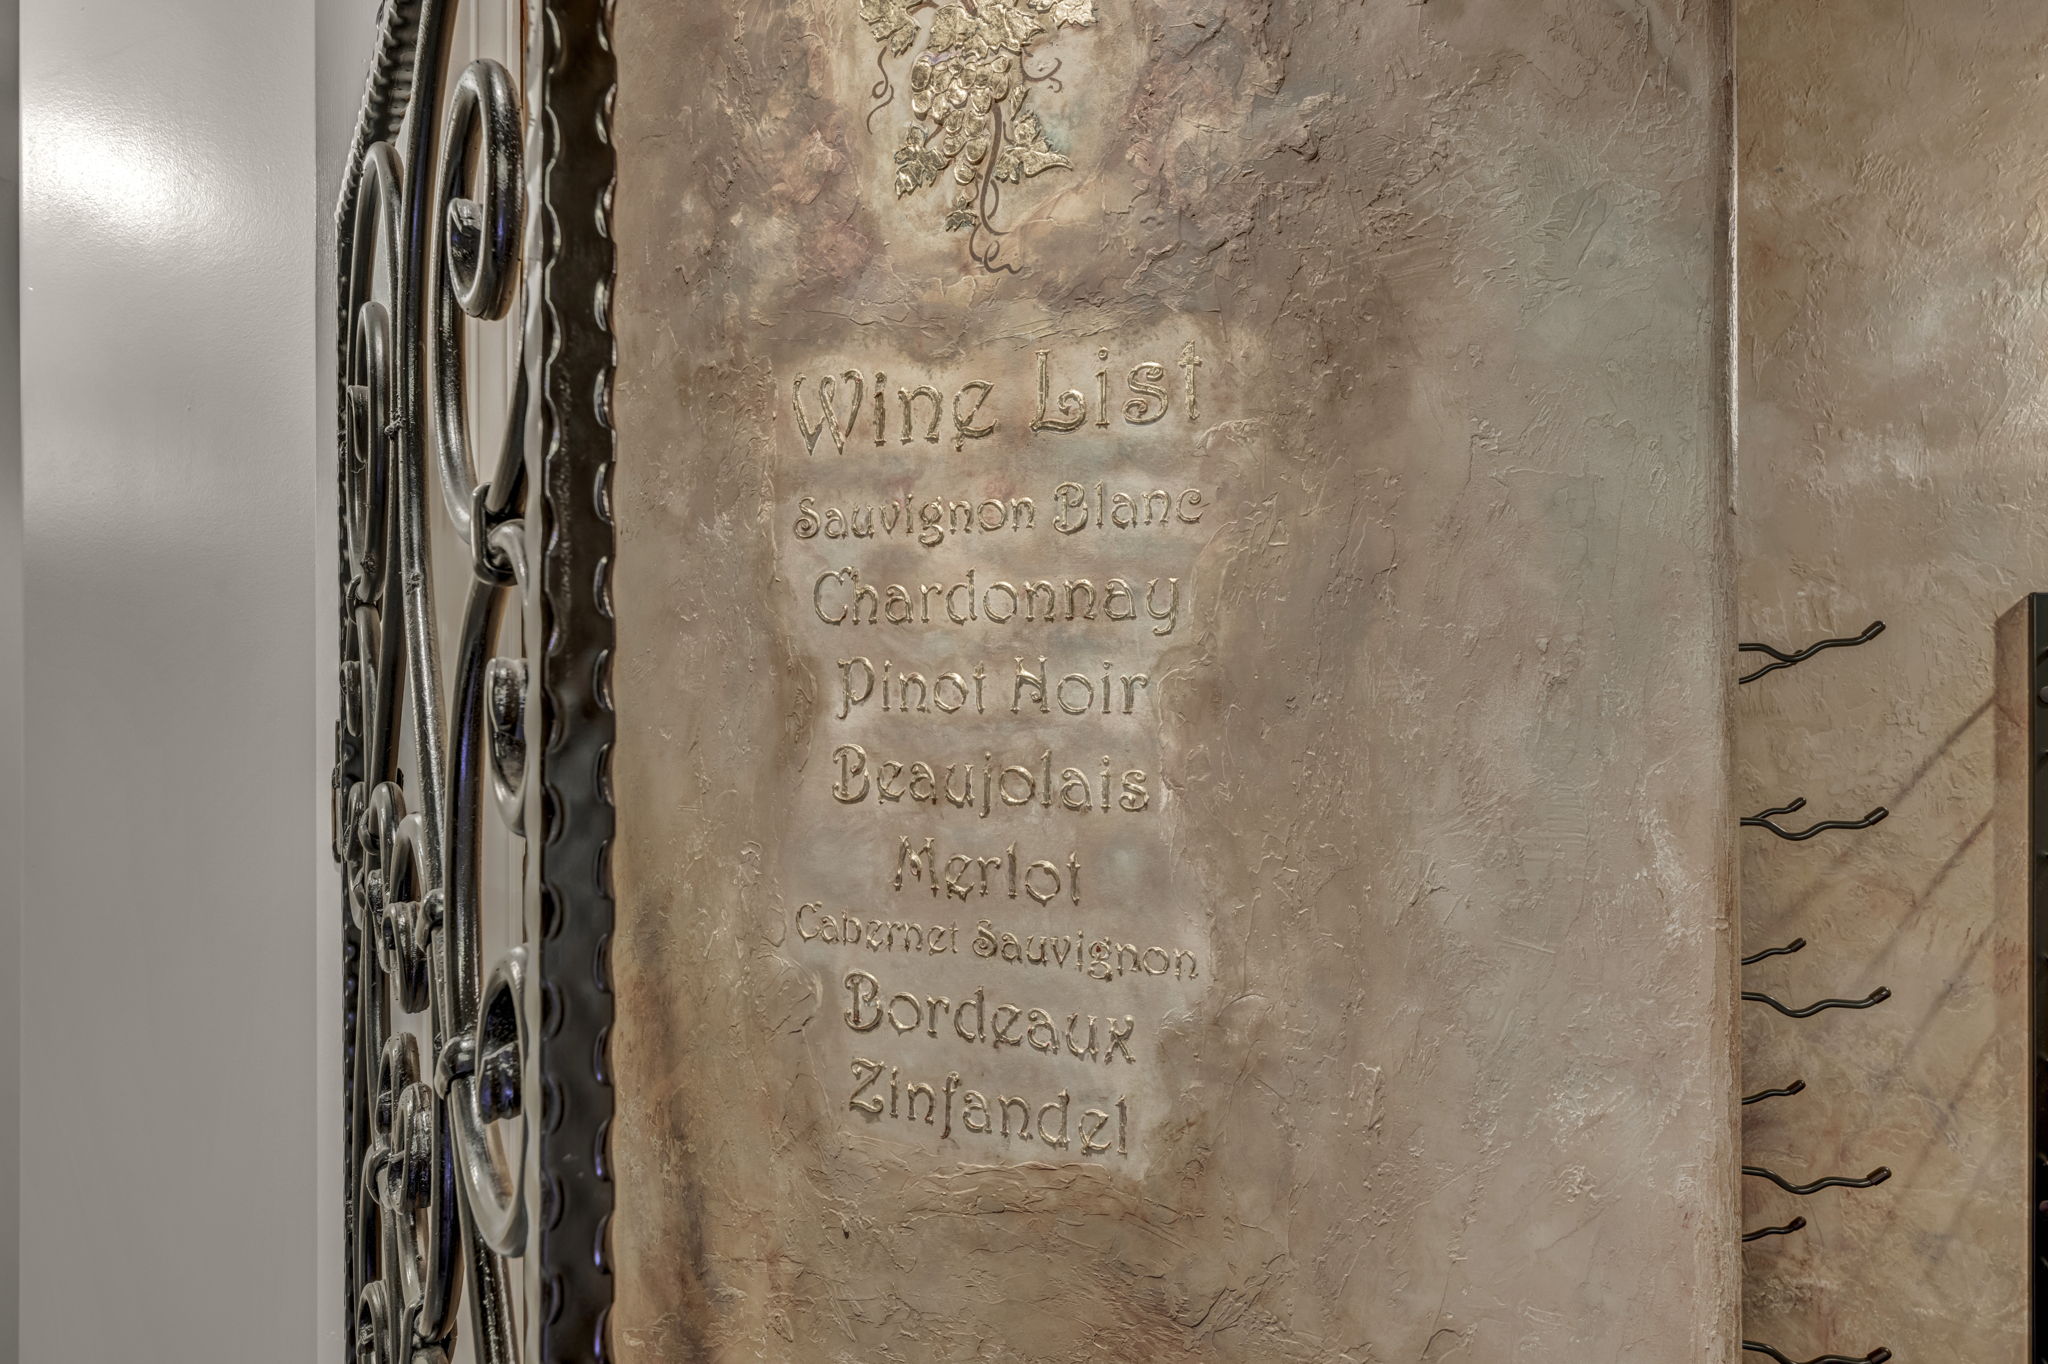 Wine List
Sauvignon Blanc
Chardonnay
Pinot Noir
Beaujolais
Merlot
Cabernet Sauvignon
Bordeaux
Zinfandel